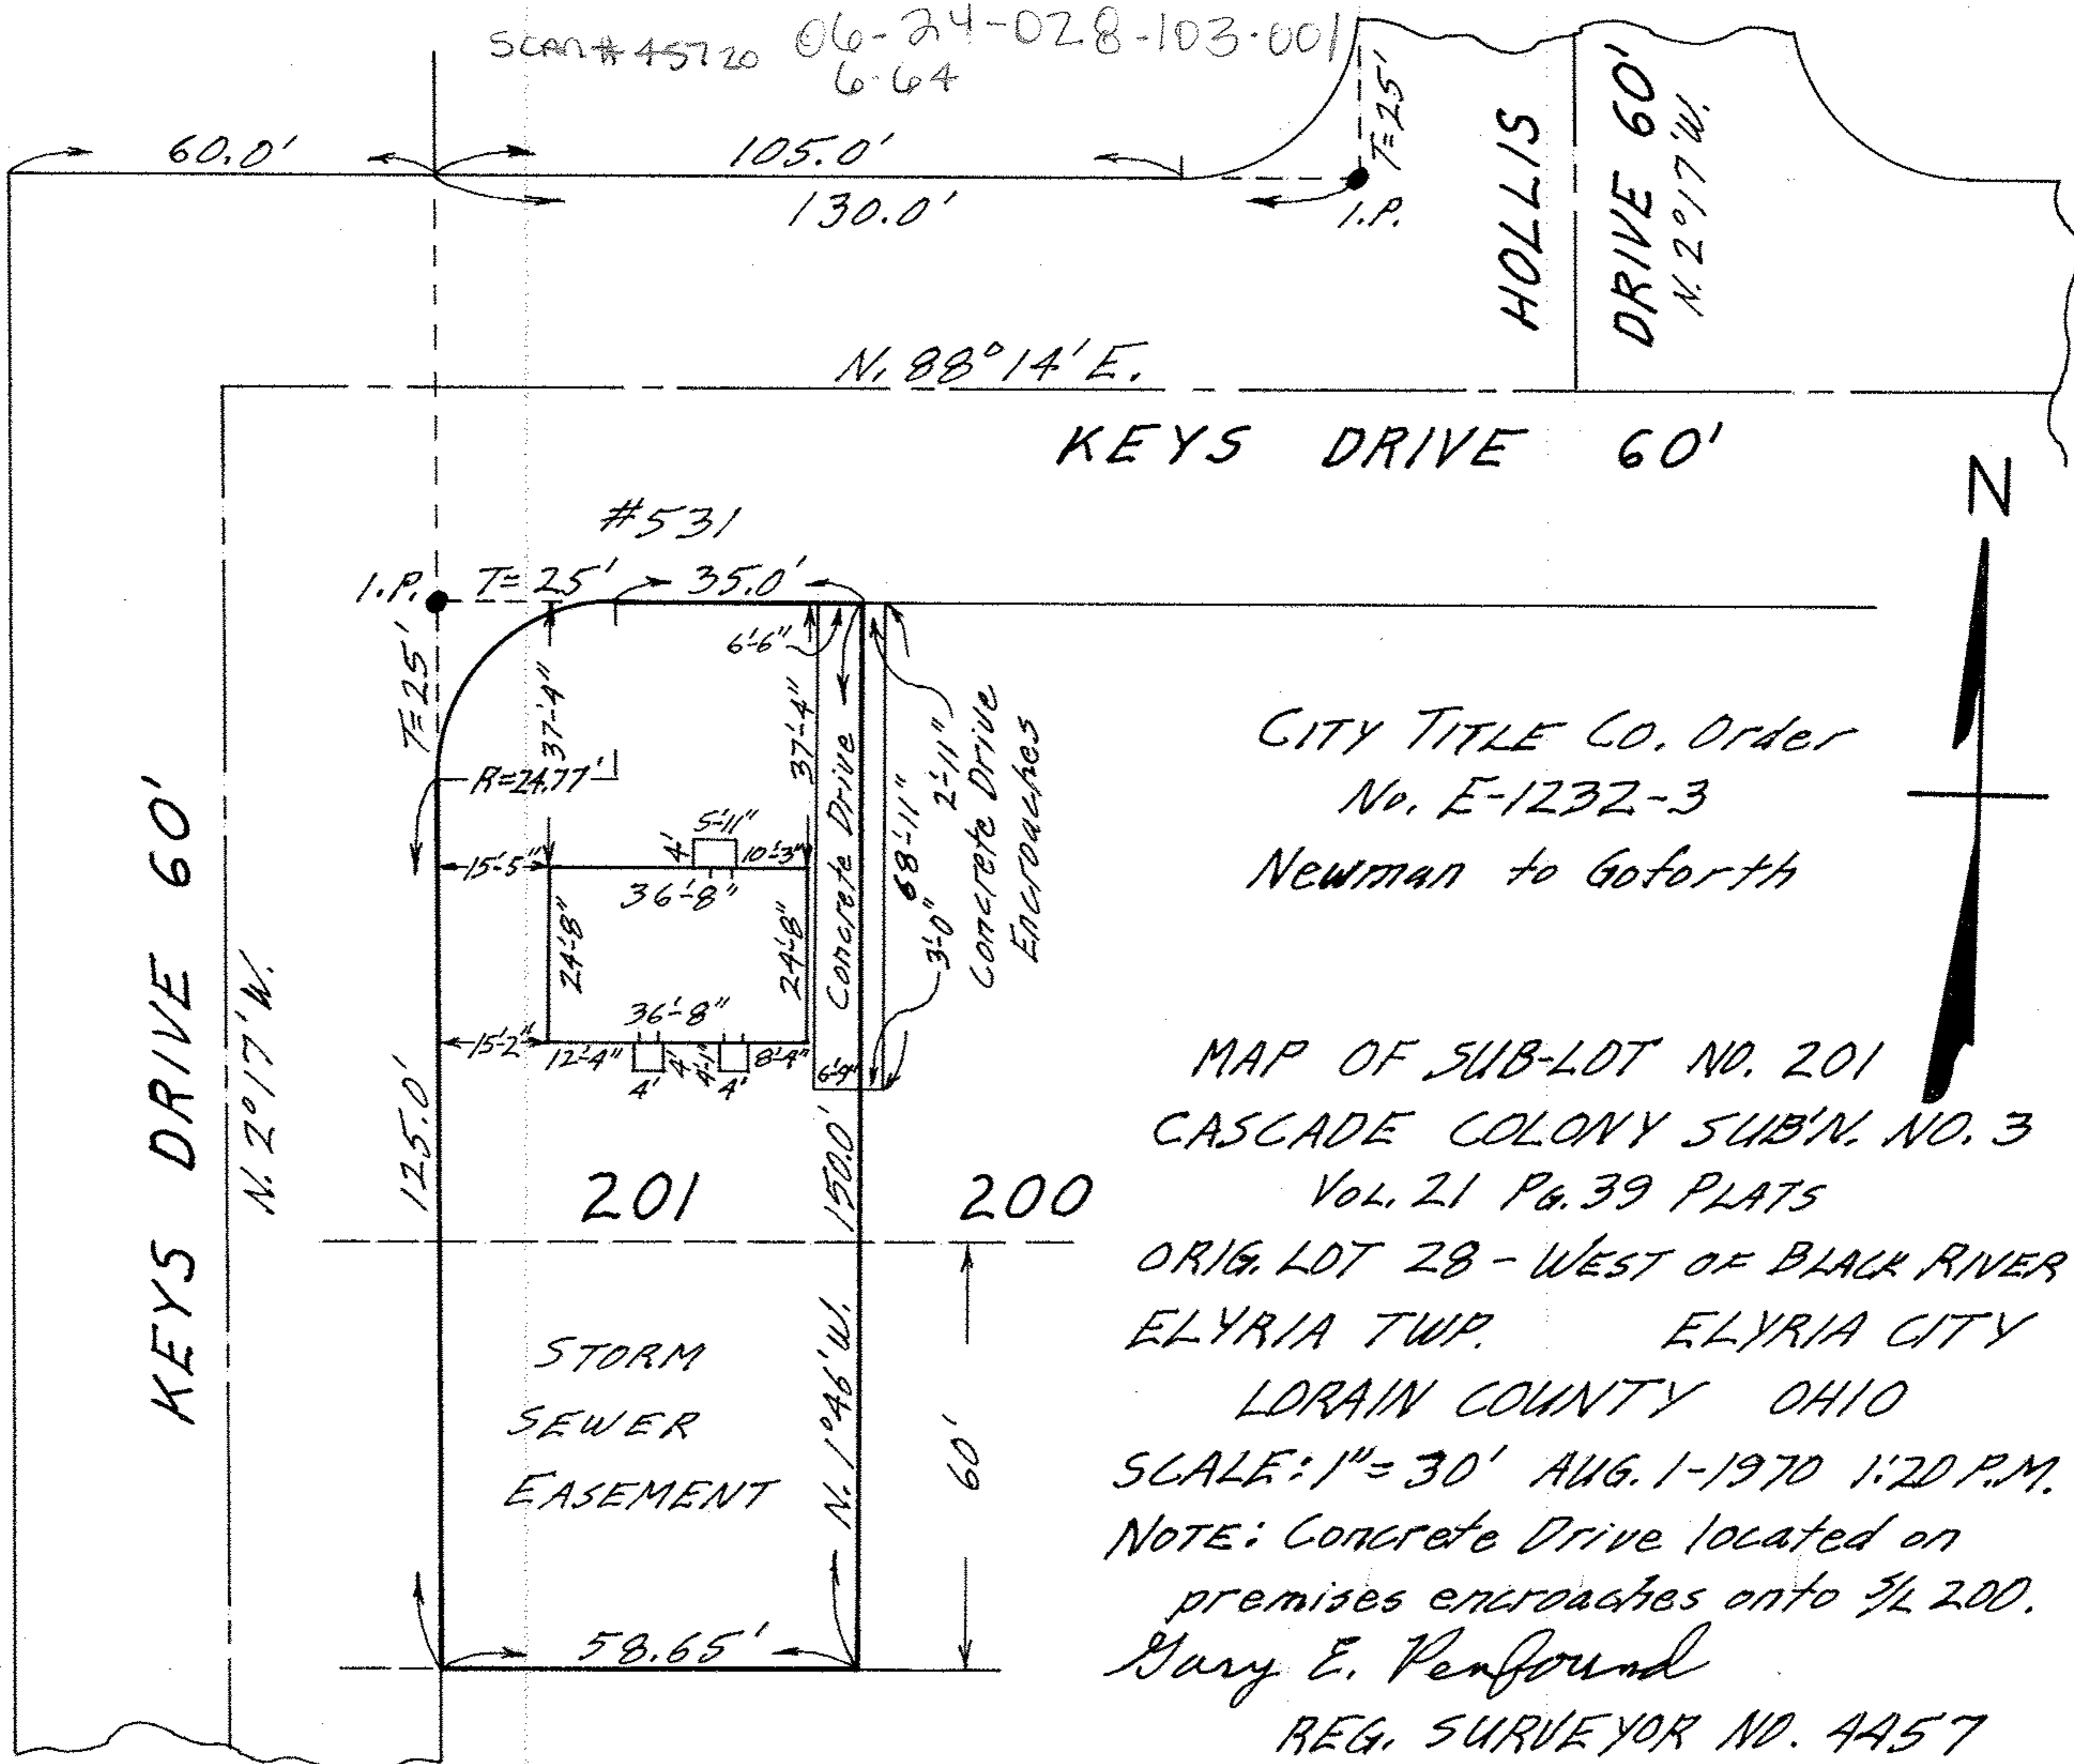 SCAN # 45720 06-24-028-103-001
6-64
60.0'
105.0'
130.0'
T=25'
I.P.
HOLLIS
DRIVE 60'
N. 2°17'W.
N. 88°14'E.
KEYS DRIVE 60'
N
#531
I.P.
T=25'
35.0'
T=25'
R=24.77'
37'-4"
6'-6"
37'-4"
Concrete Drive
68'-11"
2'-11"
3'-0"
Concrete Drive
Encroaches
15'-5"
4'
5'-11"
10'-3"
36'-8"
24'-8"
24'-8"
36'-8"
15'-2"
12'-4"
4'
4'
4'-1"
4'
8'-4"
6'-9"
KEYS DRIVE 60'
N. 2°17'W.
125.0'
150.0'
N. 1°46'W.
201
200
STORM
SEWER
EASEMENT
60'
58.65'
CITY TITLE CO. Order
No. E-1232-3
Newman to Goforth
MAP OF SUB-LOT NO. 201
CASCADE COLONY SUB'N. NO. 3
VOL. 21 PG. 39 PLATS
ORIG. LOT 28 - WEST OF BLACK RIVER
ELYRIA TWP. ELYRIA CITY
LORAIN COUNTY OHIO
SCALE: 1"=30' AUG. 1-1970 1:20 P.M.
NOTE: Concrete Drive located on
premises encroaches onto S/L 200.
Gary E. Penfound
REG. SURVEYOR NO. 4457